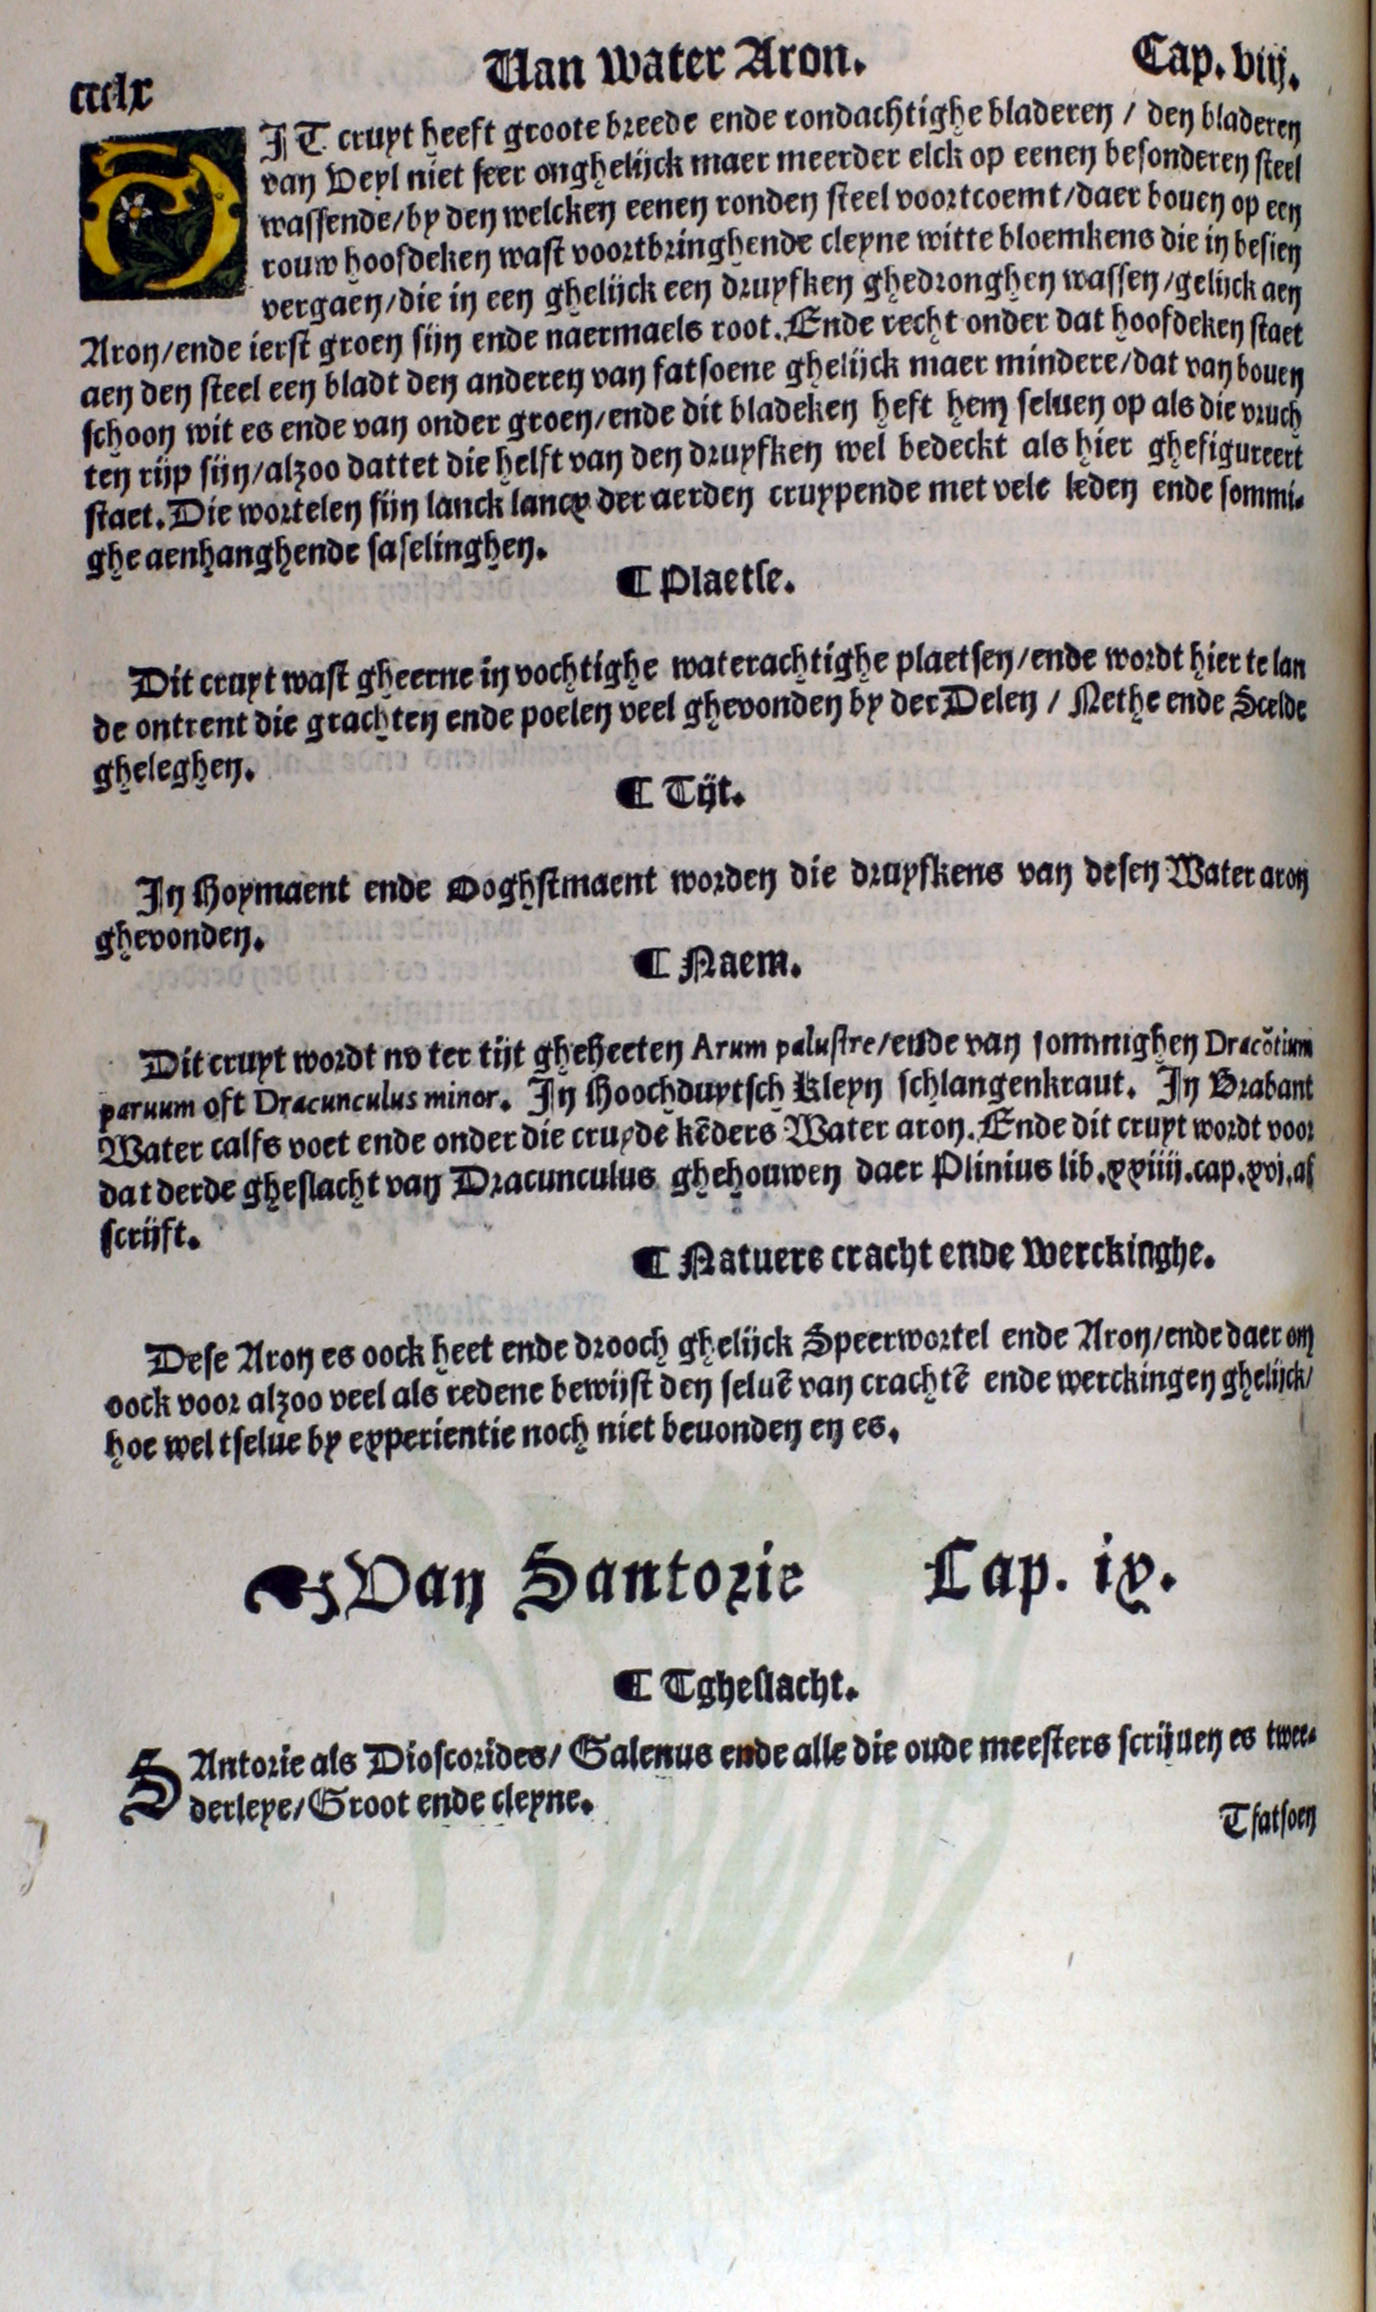 ccclx
Van water Aron.
Cap. viij.
DIT cruyt heeft groote breede ende rondachtighe bladeren / den bladeren
van Veyl niet seer onghelijck maer meerder elck op eenen besonderen steel
wassende/by den welcken eenen ronden steel voortcoemt/daer bouen op een
rouw hoofdeken wast voortbringhende cleyne witte bloemkens die in besien
vergaen/die in een ghelijck een druyfken ghedronghen wassen/gelijck aen
Aron/ende ierst groen sijn ende naermaels root. Ende recht onder dat hoofdeken staet
aen den steel een bladt den anderen van fatsoene ghelijck maer mindere/dat van bouen
schoon wit es ende van onder groen/ende dit bladeken heft hem seluen op als die vruch
ten rijp sijn/alzoo dattet die helft van den druyfken wel bedeckt als hier ghefigureert
staet. Die wortelen sijn lanck lancx der aerden cruypende met vele leden ende sommi-
ghe aenhanghende faselinghen.
¶ Plaetse.
Dit cruyt wast gheerne in vochtighe waterachtighe plaetsen/ende wordt hier te lan
de ontrent die grachten ende poelen veel ghevonden by der Delen / Nethe ende Scelde
gheleghen.
¶ Tijt.
In Hoymaent ende Ooghstmaent worden die druyfkens van desen Water aron
ghevonden.
¶ Naem.
Dit cruyt wordt nv ter tijt gheheeten Arum palustre/ende van sommighen Dracõtium
paruum oft Dracunculus minor. In Hoochduytsch Kleyn schlangenkraut. In Brabant
Water calfs voet ende onder die cruyde kẽders Water aron. Ende dit cruyt wordt voor
dat derde gheslacht van Dracunculus ghehouwen daer Plinius lib.xxiiij.cap.xvj.af
scrijft.
¶ Natuere cracht ende Werckinghe.
Dese Aron es oock heet ende drooch ghelijck Speerwortel ende Aron/ende daer om
oock voor alzoo veel als redene bewijst den seluẽ van crachtẽ ende werckingen ghelijck/
hoe wel tselue by experientie noch niet beuonden en es.
Van Santorie Cap. ix.
¶ Tgheslacht.
SAntorie als Dioscorides/ Galenus ende alle die oude meesters scrijuen es twee-
derleye/Groot ende cleyne.
Tfatsoen